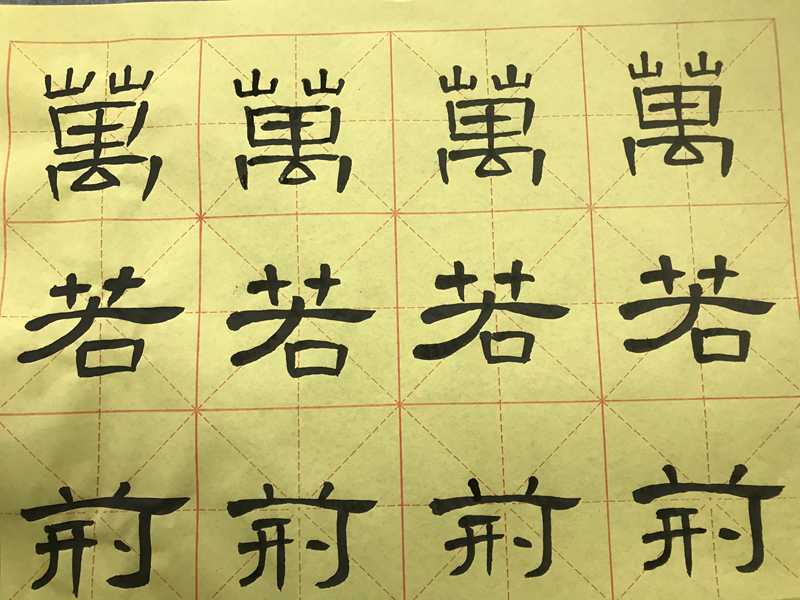 萬萬萬萬
若若若若
荊荊荊荊